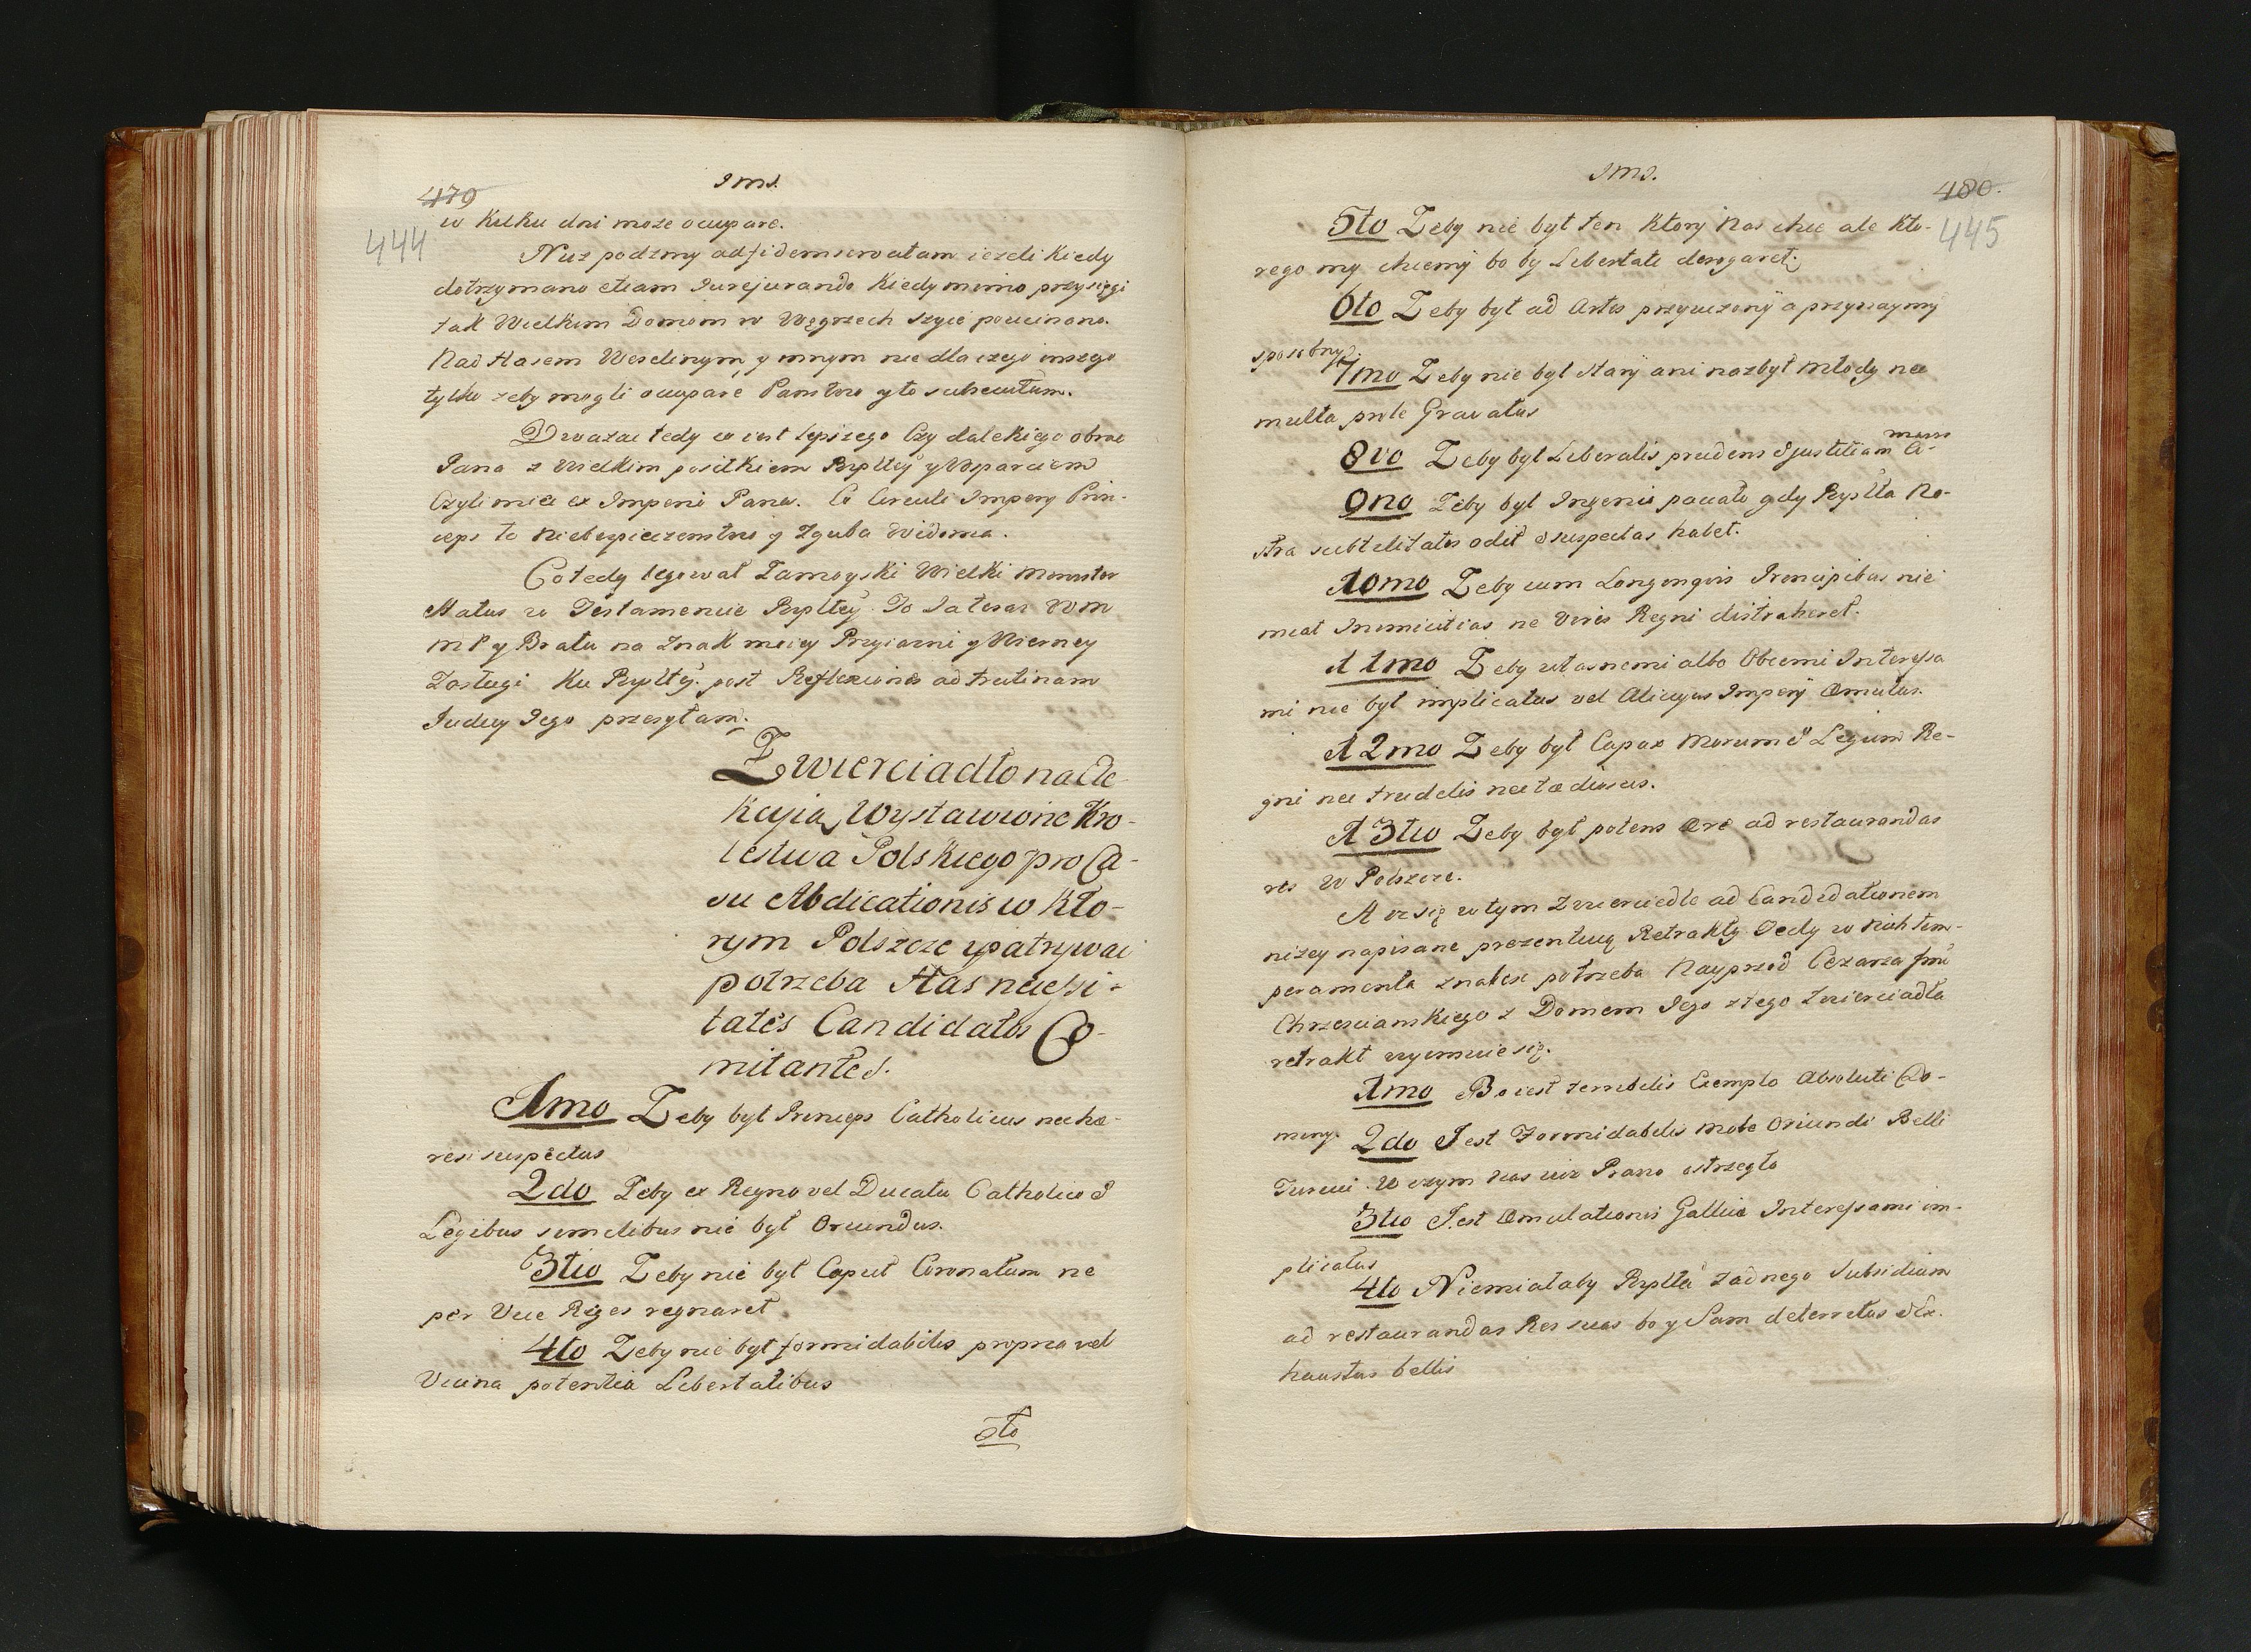 479
444
w Kilku dni może ocupare.
Nuż podzmy ad fidem servatam ieżeli Kiedy
dotrzymano etiam Jurejurando Kiedy mimo przysięgi
tak Wielkim Domom w Węgrzech szyie poucinano.
Nadastasem Weselinym y innym nie dla czego inszego
tylko zeby mogli ocupare Panstwo y to subsecutum.
Uważac tedy co iest lepszego Czy dalekiego obrac
Pana z wielkim posiłkiem Rpltey y Wsparciem
Czyli miec ex Imperii Pana. A Circuli Impery Prin-
ceps to Niebezpieczenstwo y Zguba Widoma.
Co tedy legował Zamoyski Wielki Minister
Status w Testamencie Rpltey. To Ja teraz WM
MP y Bratu na Znak moiey Przyiazni y Wierney
Zasługi Ku Rpltey. post Reflexiones ad trutinam
Judicy Jego przesyłam.
Zwierciadło na Ele-
kcyią Wystawione Kro-
lestwa Polskiego pro Ca-
su Abdicationis w Kto-
rym Polszcze upatrywac
potrzeba Has necessi-
tates Candidatos Co-
mitantes.
1mo Zeby był Princeps Catholicus nec hæ-
resi suspectus
2do Zeby ex Regno vel Ducatu Catholico &
Legibus similibus nie był Oriundus.
3tio Zeby nie był Caput Coronatum ne
per Vice Reges regnaret
4to Zeby nie był formidabilis propria vel
Vicina potentia Libertatibus
5to
480.
445
5to Zeby nie był ten Ktory Nas chce ale Kto-
rego my chcemy bo by Libertati derogaret.
6to Zeby był ad Artes przyuczony a przynaymy
sposobny.
7mo Zeby nie był stary ani nazbyt młody nec
multa prole Gravatus
8vo Zeby był Liberalis prudens & justitiam A-
mans
9no Zeby był Ingenio pacato gdy Ryplta No-
stra subtilitates odit & suspectas habet.
10mo Zeby cum Longinquis Principibus nie
miał Inimicitias ne Vires Regni distraheret.
11mo Zeby własnemi albo Obcemi Interessa
mi nie był implicatus vel Alicujus Impery Æmulus.
12mo Zeby był Capax Morum & Legum Re-
gni nec crudelis nec tædiosus.
13tio Zeby był potens ære ad restaurandas
res w Polszcze.
A ze się w tym Zwierciedle ad Candidationem
niżey napisane prezentuią Retrakty Tedy w Nich tem-
peramenta znalesc potrzeba Nayprzod Cezarza
Chrzescianskiego z Domem Jego z tego Zwierciadła
retrakt wyimuie się.
1mo Bo iest terribilis Exemplo Absoluti Do-
miny.
2do Jest Formidabilis Mole Oriundi Belli
Turcici. W czym nas iuz Prano ostrzegło
3tio Jest Æmulationis Galliæ Interessami im-
plicatus
4to Niemiałaby Rplta żadnego Subsidium
ad restaurandas Res suas bo y Sam deterretus & Ex-
haustus bellis